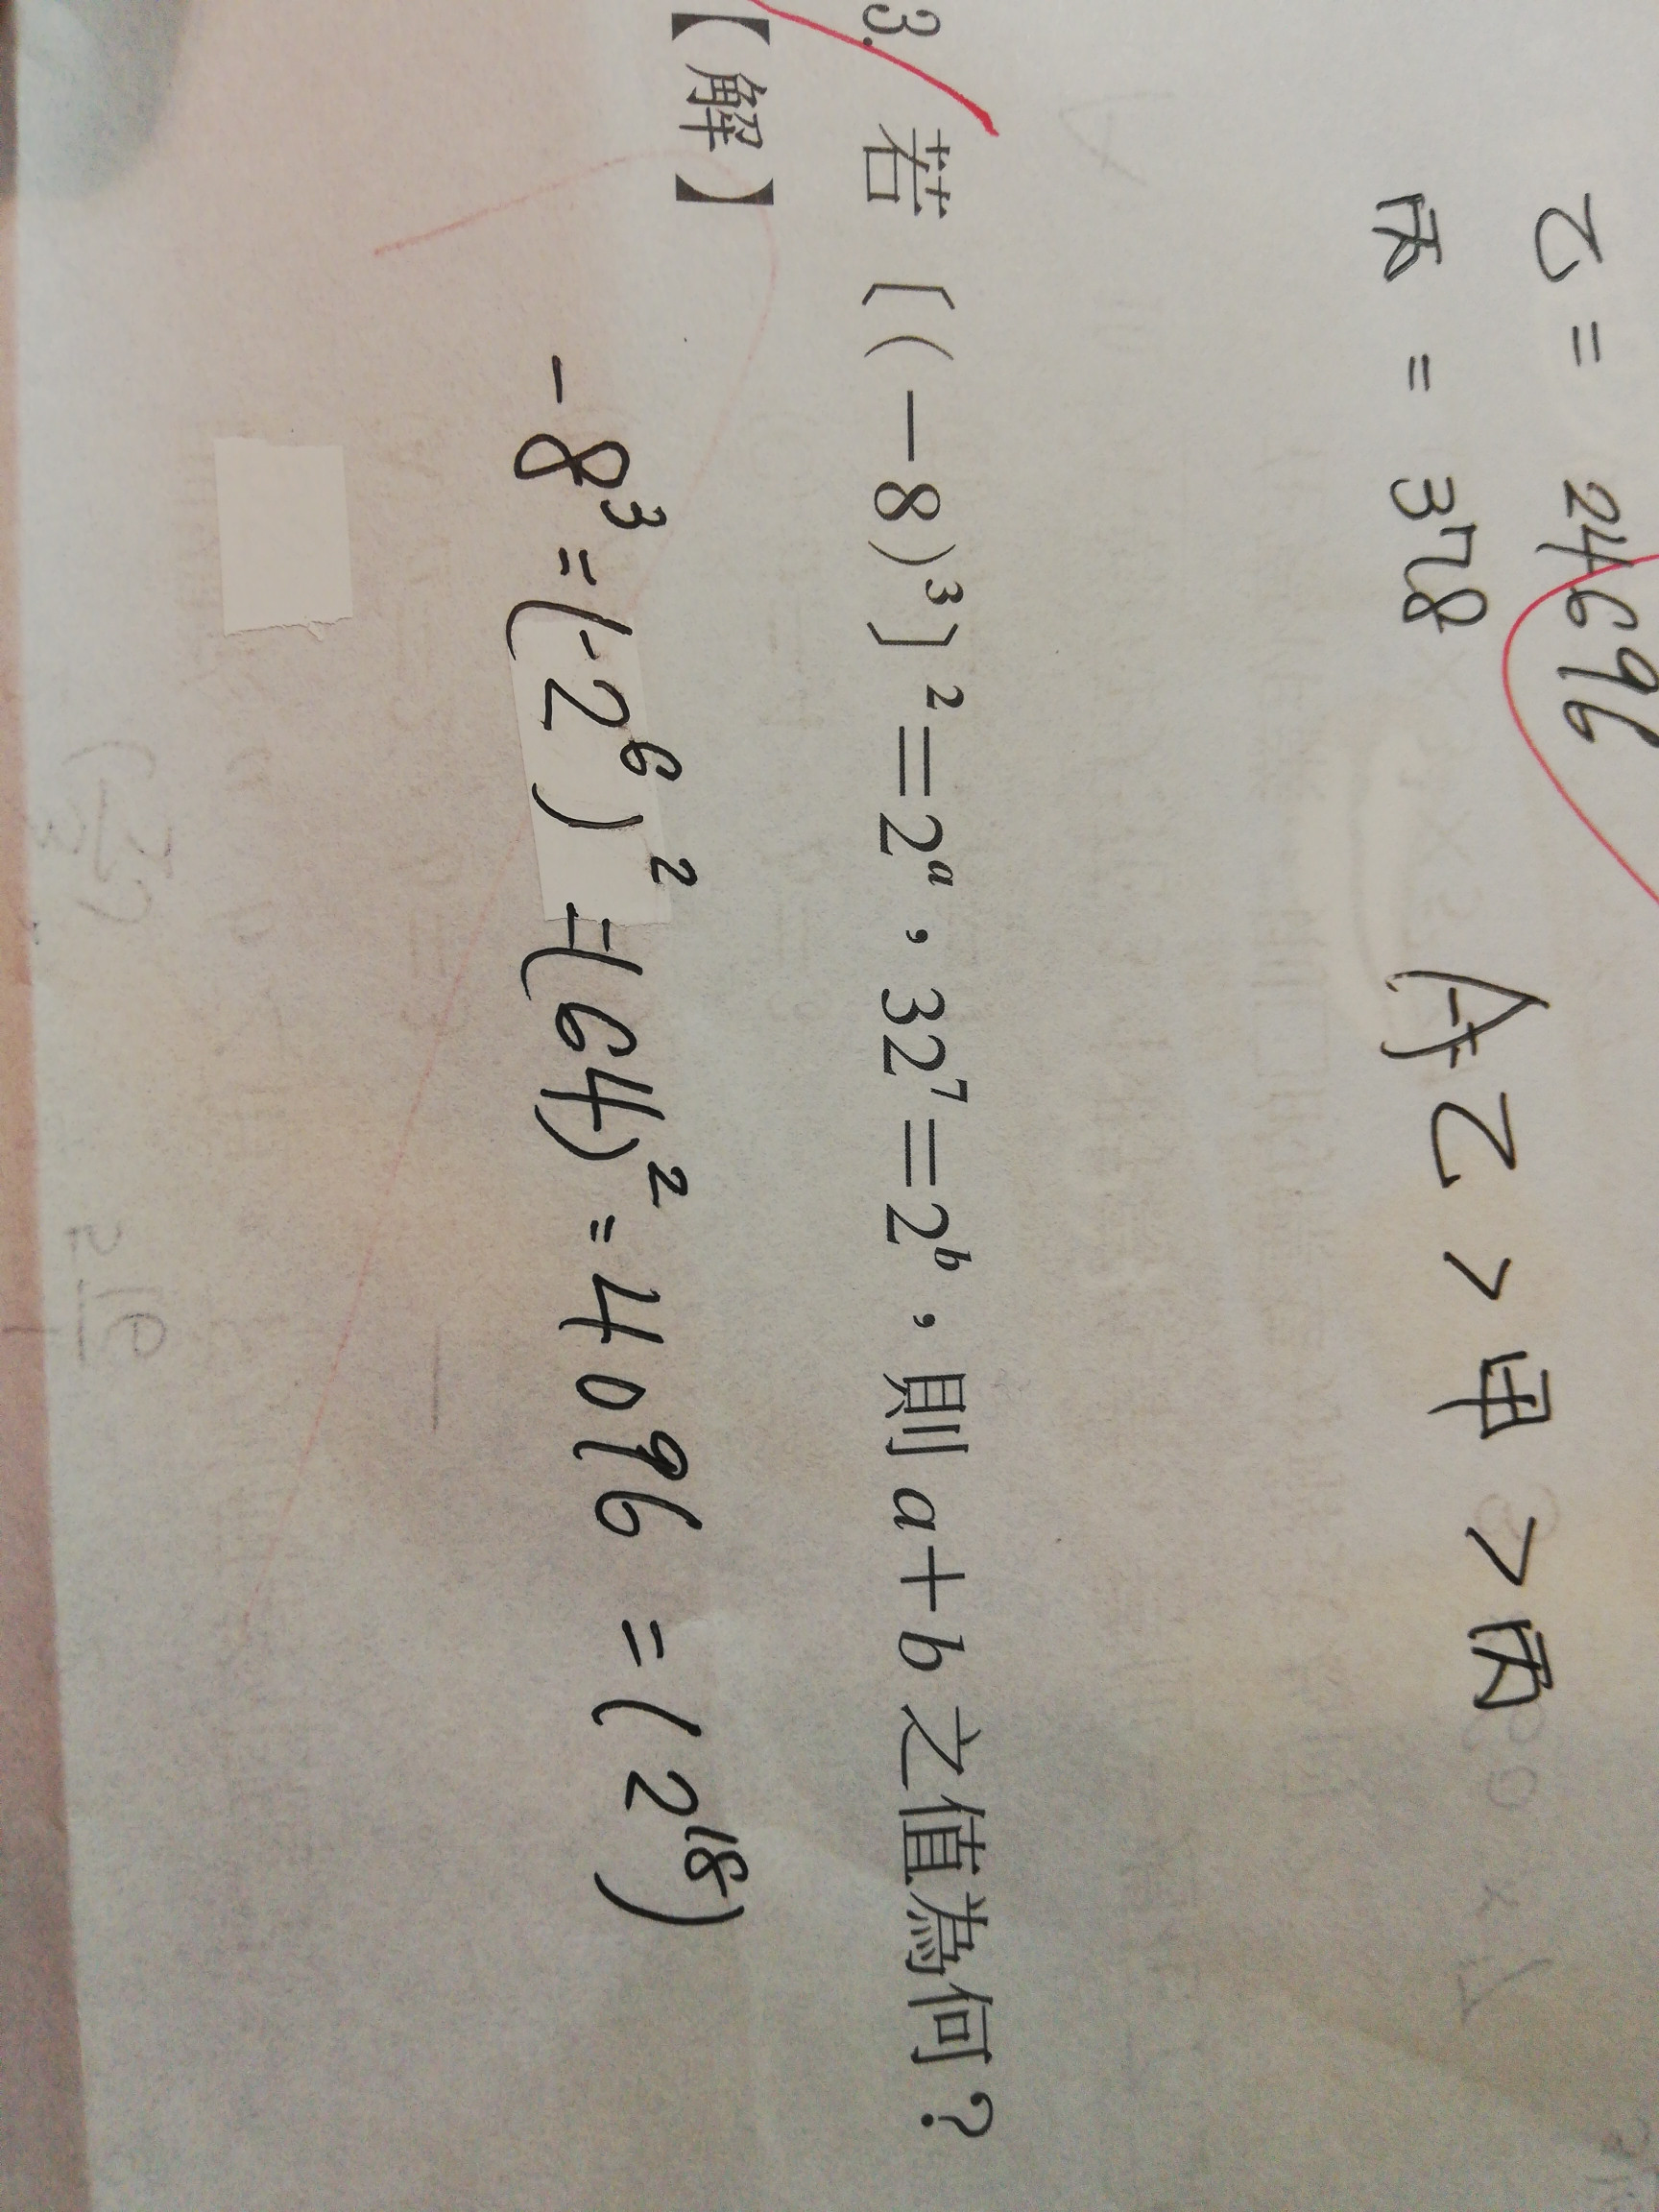 乙 = 24696
丙 = 378
A: 乙 > 甲 > 丙
3. 若〔(－8)³〕²＝2ᵃ，32⁷＝2ᵇ，則 a＋b 之值為何？
【解】
-8³ = (-2⁶)² = (64)² = 4096 = (2¹⁸)